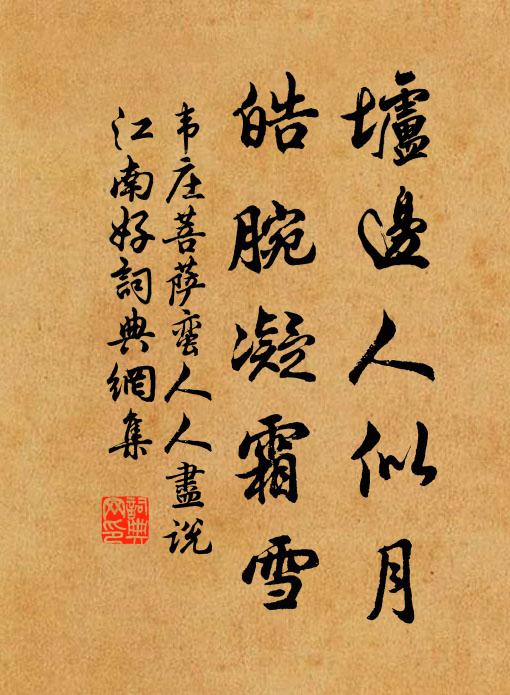 壚邊人似月
皓腕凝霜雪
韦庄菩萨蛮人人盡说
江南好詞典網集
詞典网印